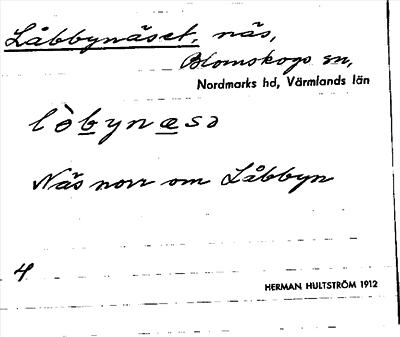 Låbbynäset, näs,
Blomskogs sn,
Nordmarks hd, Värmlands län
lòbynæsə
Näs norr om Låbbyn
4
HERMAN HULTSTRÖM 1912